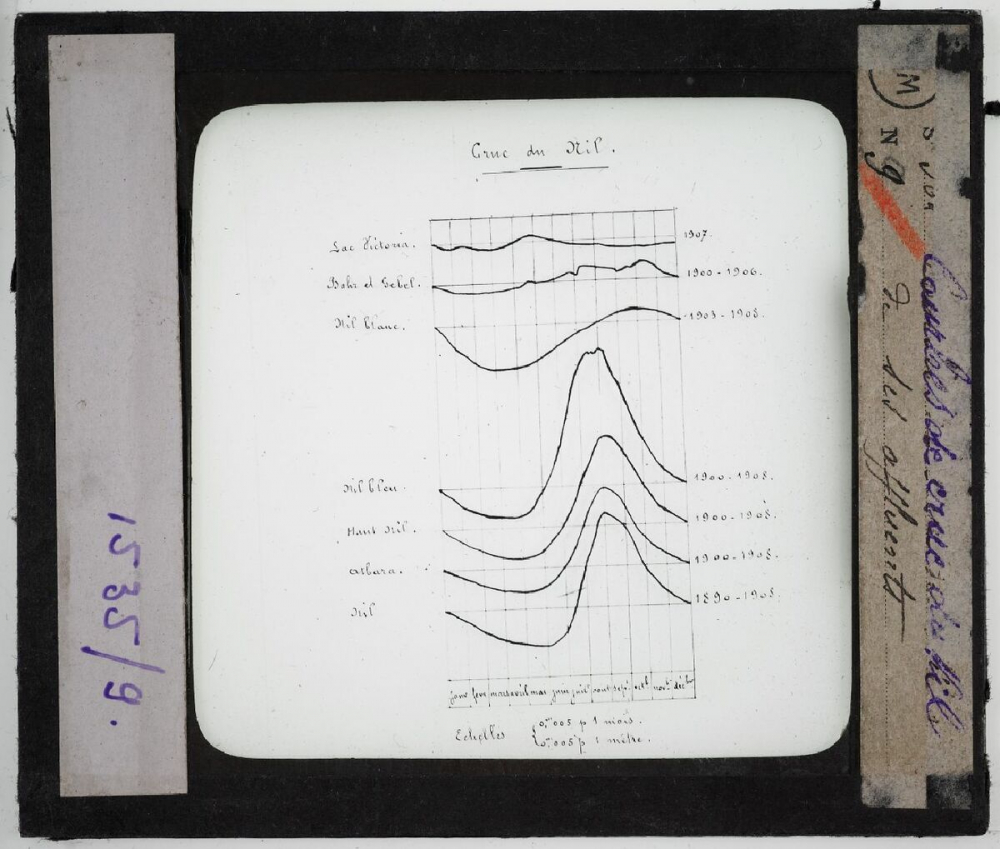 Crue du Nil.
Lac Victoria. 1907.
Bahr el Gebel. 1900-1906.
Nil blanc. 1903-1908.
Nil bleu. 1900-1908.
Haut Nil. 1900-1908.
Atbara. 1900-1908.
Nil 1890-1908.
janv févr mars avril mai juin juil aout sept oct. nov. déc.
Echelles { 0,m005 p 1 mois.
0,m005 p 1 mètre.
1535/9.
M)
N 9
Courbes de crue du Nil
de ses affluents